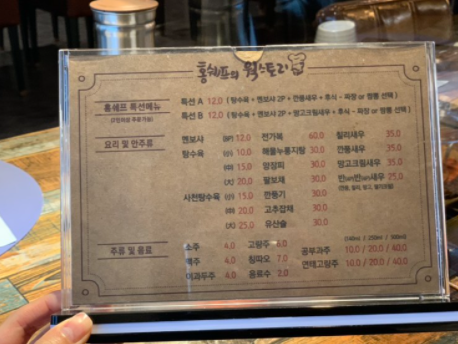 홍쉐프의 웍스토리
홍쉐프 특선메뉴
(2인이상 주문가능)
특선 A 12.0 ( 탕수육 + 멘보샤 2P + 깐풍새우 + 후식 - 짜장 or 짬뽕 선택 )
특선 B 12.0 ( 탕수육 + 멘보샤 2P + 망고크림새우 + 후식 - 짜장 or 짬뽕 선택 )
요리 및 만주류
멘보샤 (8P) 12.0 전가복 60.0 칠리새우 35.0
탕수육 (小) 10.0 해물누룽지탕 30.0 깐풍새우 35.0
(中) 15.0 양장피 30.0 망고크림새우 35.0
(大) 20.0 팔보채 30.0 반반반새우 25.0
사천탕수육 (小) 15.0 깐풍기 30.0
(中) 20.0 고추잡채 30.0
(大) 25.0 유산슬 30.0
주류 및 음료
소주 4.0 고량주 6.0 (140㎖ / 250㎖ / 500㎖)
맥주 4.0 칭따오 7.0 공부가주 10.0 / 20.0 / 40.0
이과두주 4.0 음료수 2.0 연태고량주 10.0 / 20.0 / 40.0